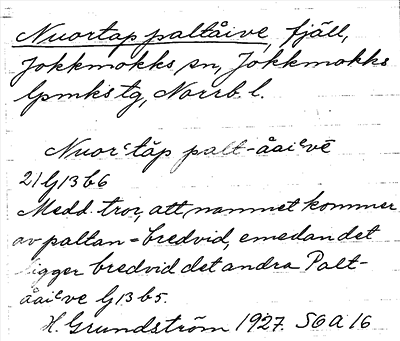 Nuortap paltåive, fjäll,
Jokkmokks sn, Jokkmokks
lpmkstg, Norrb. l.
Nuorᶜtăp palt-åaiᶜvē
21 G 13 b 6
Medd. tror, att namnet kommer
av paltan = bredvid, emedan det
ligger bredvid det andra Palt-
åaiᶜve G 13 b 5.
H. Grundström 1927. SOA 16